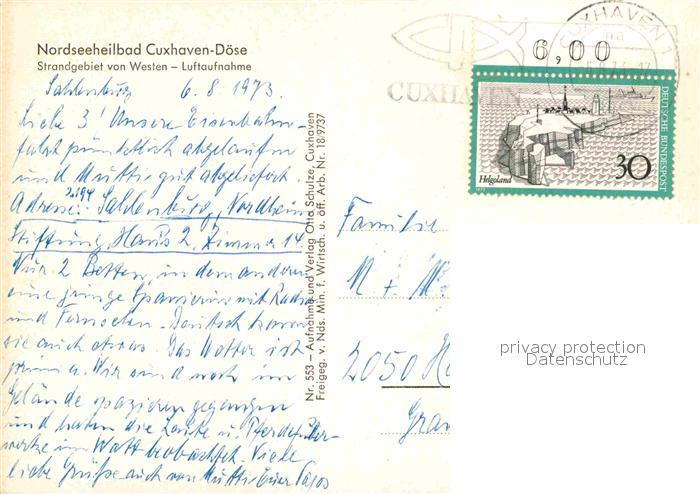 Nordseeheilbad Cuxhaven-Döse
Strandgebiet von Westen – Luftaufnahme
Sahlenburg 6.8.1973.
Liebe 3! Unsere Eisenbahn-
fahrt pünktlich abgelaufen
und Mutti gut abgeliefert.
Adresse: 2194 Sahlenburg, Nordheim
Stiftung, Haus 2, Zimmer 14
Nur 2 Betten, in dem anderen
eine junge Spanierin mit Radio
und Fernsehen. Deutsch kann
sie auch etwas. Das Wetter ist
prima. Wir sind noch im
Gelände spazieren gegangen
und haben die Leute u. Pferdefuhr-
werke im Watt beobachtet. Viele
liebe Grüße auch von Mutti Euer
Nr. 553 – Aufnahme und Verlag Otto Schulze, Cuxhaven
Freigeg. v. Nds. Min. f. Wirtsch. u. öff. Arb. Nr. 18/9737
CUXHAVEN 1
na
6.8.73.-17
CUXHAVEN
6 9 00
DEUTSCHE BUNDESPOST
Helgoland
30
1972
Familie
2050 H
privacy protection
Datenschutz